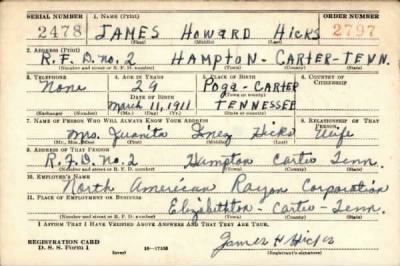 SERIAL NUMBER 1. NAME (Print) ORDER NUMBER
2478 JAMES Howard Hicks 2797
(First) (Middle) (Last)
2. ADDRESS (Print)
R.F.D. no. 2 HAMPTON - CARTER - TENN.
(Number and street or R. F. D. number) (Town) (County) (State)
3. TELEPHONE 4. AGE IN YEARS 5. PLACE OF BIRTH 6. COUNTRY OF CITIZENSHIP
None 29 Poga - CARTER
DATE OF BIRTH (Town or county)
March 11, 1911 TENNESSEE
(Exchange) (Number) (Mo.) (Day) (Yr.) (State or country)
7. NAME OF PERSON WHO WILL ALWAYS KNOW YOUR ADDRESS 8. RELATIONSHIP OF THAT PERSON
Mrs. Juanita Inez Hicks Wife
(Mr., Mrs., Miss) (First) (Middle) (Last)
9. ADDRESS OF THAT PERSON
R.F.D. no. 2 Hampton Carter Tenn.
(Number and street or R. F. D. number) (Town) (County) (State)
10. EMPLOYER'S NAME
North American Rayon Corporation
11. PLACE OF EMPLOYMENT OR BUSINESS
Elizabethton - Carter - Tenn.
(Number and street or R. F. D. number) (Town) (County) (State)
I AFFIRM THAT I HAVE VERIFIED ABOVE ANSWERS AND THAT THEY ARE TRUE.
REGISTRATION CARD James H Hicks
D. S. S. Form 1 (over) 16-17105 (Registrant's signature)